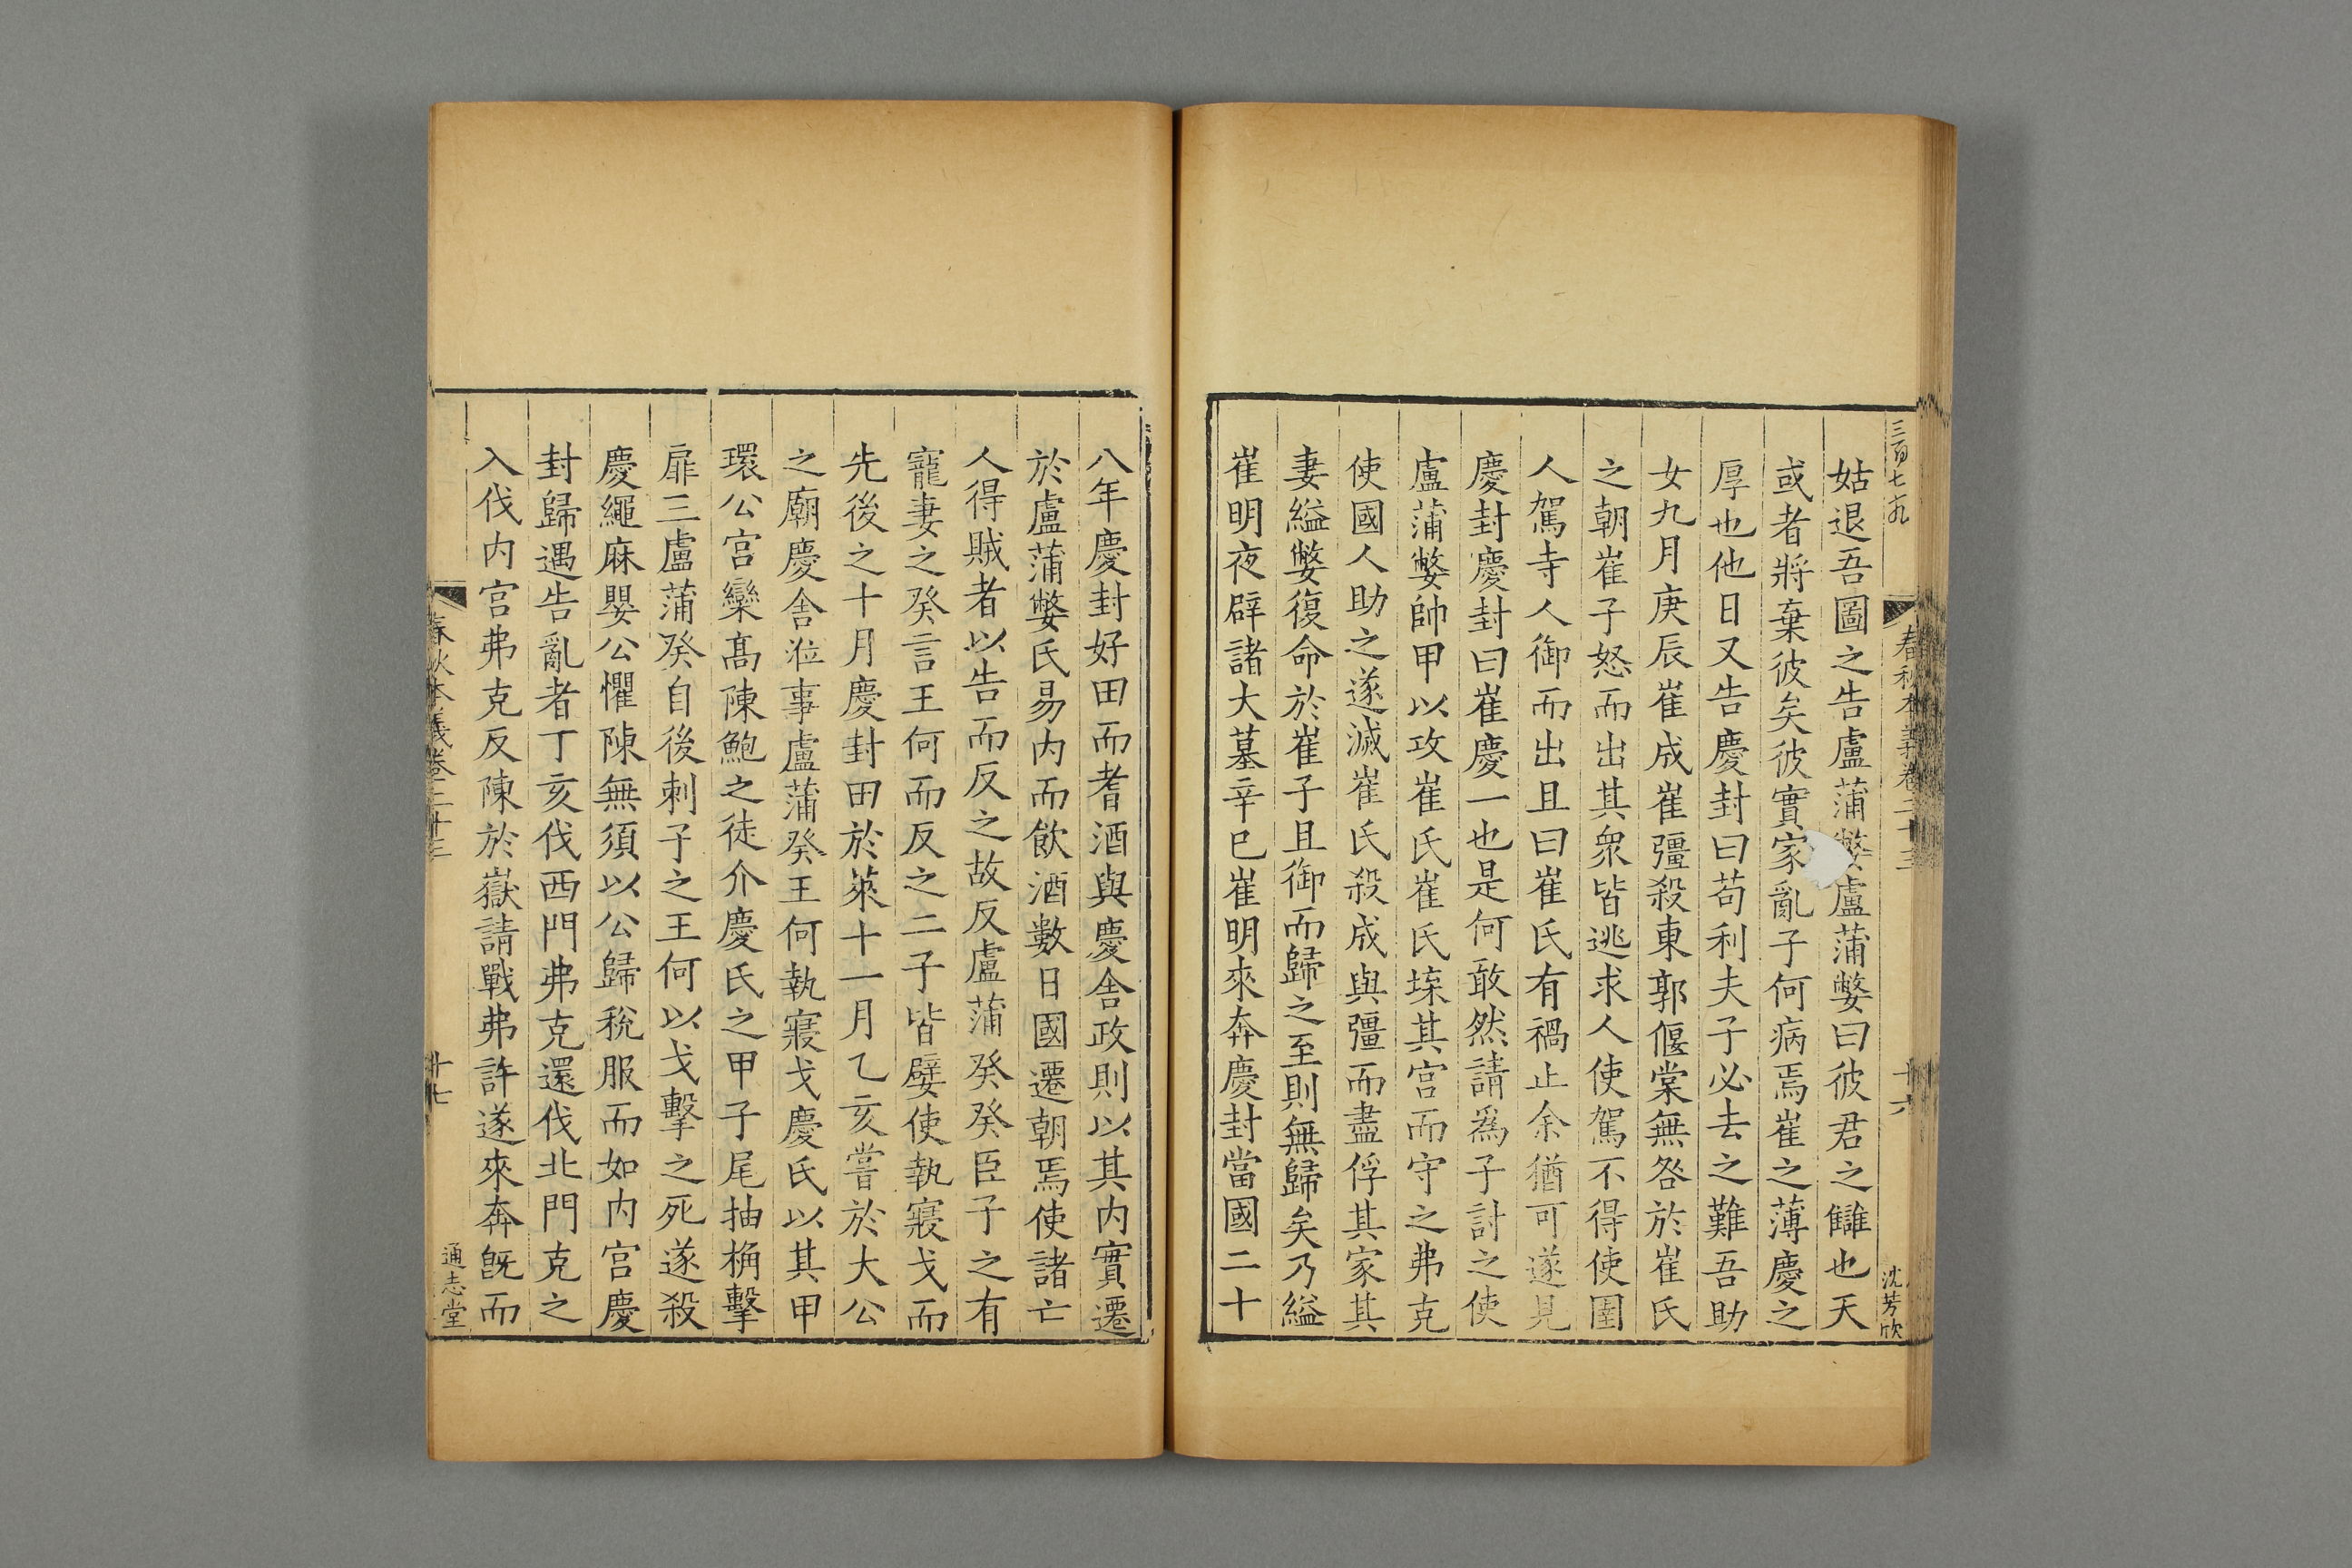 三百七九
春秋本義卷二十三
十六
沈芳欣
姑退吾圖之告盧蒲嫳盧蒲嫳曰彼君之讎也天
或者將棄彼矣彼實家亂子何病焉崔之薄慶之
厚也他日又告慶封曰苟利夫子必去之難吾助
女九月庚辰崔成崔彊殺東郭偃棠無咎於崔氏
之朝崔子怒而出其衆皆逃求人使駕不得使圉
人駕寺人御而出且曰崔氏有禍止余猶可遂見
慶封慶封曰崔慶一也是何敢然請爲子討之使
盧蒲嫳帥甲以攻崔氏崔氏堞其宫而守之弗克
使國人助之遂滅崔氏殺成與彊而盡俘其家其
妻縊嫳復命於崔子且御而歸之至則無歸矣乃縊
崔明夜辟諸大墓辛巳崔明來奔慶封當國二十
八年慶封好田而耆酒與慶舍政則以其内實遷
於盧蒲嫳氏易内而飲酒數日國遷朝焉使諸亡
人得賊者以告而反之故反盧蒲癸癸臣子之有
寵妻之癸言王何而反之二子皆嬖使執寢戈而
先後之十月慶封田於萊十一月乙亥嘗於大公
之廟慶舍涖事盧蒲癸王何執寢戈慶氏以其甲
環公宫欒高陳鮑之徒介慶氏之甲子尾抽桷擊
扉三盧蒲癸自後刺子之王何以戈擊之死遂殺
慶繩麻嬰公懼陳無須以公歸稅服而如内宫慶
封歸遇告亂者丁亥伐西門弗克還伐北門克之
入伐内宫弗克反陳於嶽請戰弗許遂來奔旣而
春秋本義卷二十三
十七
通志堂